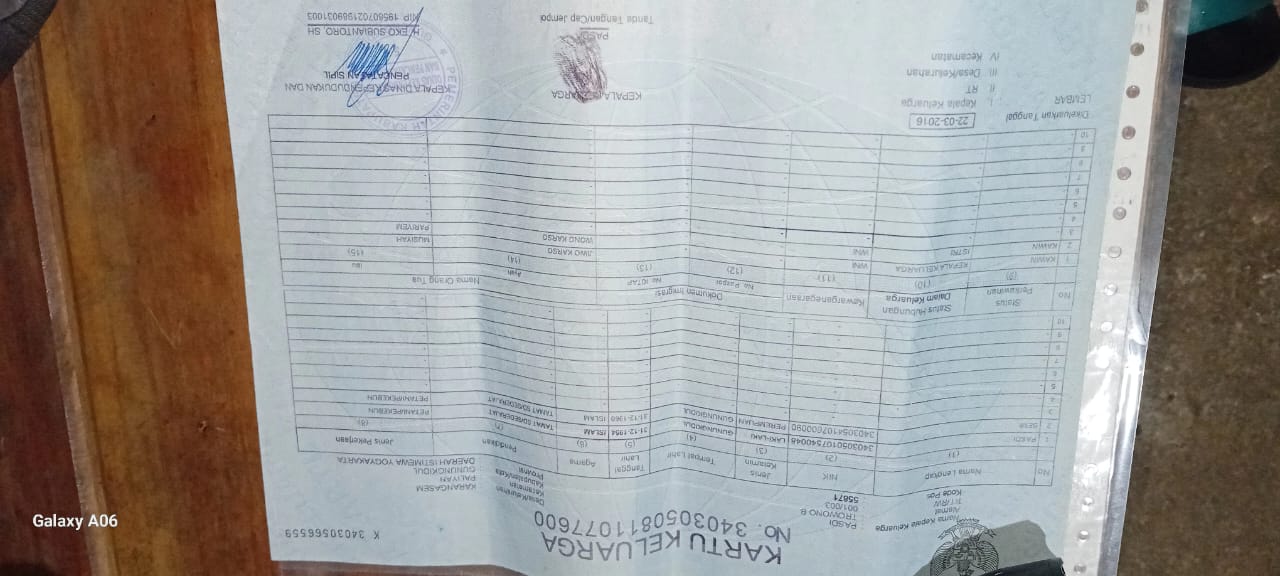 KARTU KELUARGA
No. 3403050811077600
K 34030566559
Nama Kepala Keluarga : PASDI
Alamat : TROWONO B
RT/RW : 001/003
Kode Pos : 55871
Desa/Kelurahan : KARANGASEM
Kecamatan : PALIYAN
Kabupaten/Kota : GUNUNGKIDUL
Provinsi : DAERAH ISTIMEWA YOGYAKARTA
No Nama Lengkap NIK Jenis Kelamin Tempat Lahir Tanggal Lahir Agama Pendidikan Jenis Pekerjaan
(1) (2) (3) (4) (5) (6) (7) (8)
1 PASDI LAKI-LAKI GUNUNGKIDUL 31-12-1954 ISLAM TAMAT SD/SEDERAJAT PETANI/PEKEBUN
2 PEREMPUAN GUNUNGKIDUL 31-12-1960 ISLAM TAMAT SD/SEDERAJAT PETANI/PEKEBUN
3
4
5
6
7
8
9
10
No Status Perkawinan Status Hubungan Dalam Keluarga Kewarganegaraan Dokumen Imigrasi Nama Orang Tua
No. Paspor No. KITAP Ayah Ibu
(9) (10) (11) (12) (13) (14) (15)
1 KAWIN KEPALA KELUARGA WNI - - JIWO KARSO MUSIYAH
2 KAWIN ISTRI WNI - - WONG KARSO PARIYEM
3
4
5
6
7
8
9
10
Dikeluarkan Tanggal : 22-03-2016
LEMBAR : I. Kepala Keluarga
II. RT
III. Desa/Kelurahan
IV. Kecamatan
KEPALA KELUARGA
PASDI
Tanda Tangan/Cap Jempol
KEPALA DINAS KEPENDUDUKAN DAN
PENCATATAN SIPIL
H. EKO SUBIANTORO, SH
NIP. 195807021989031003
Galaxy A06